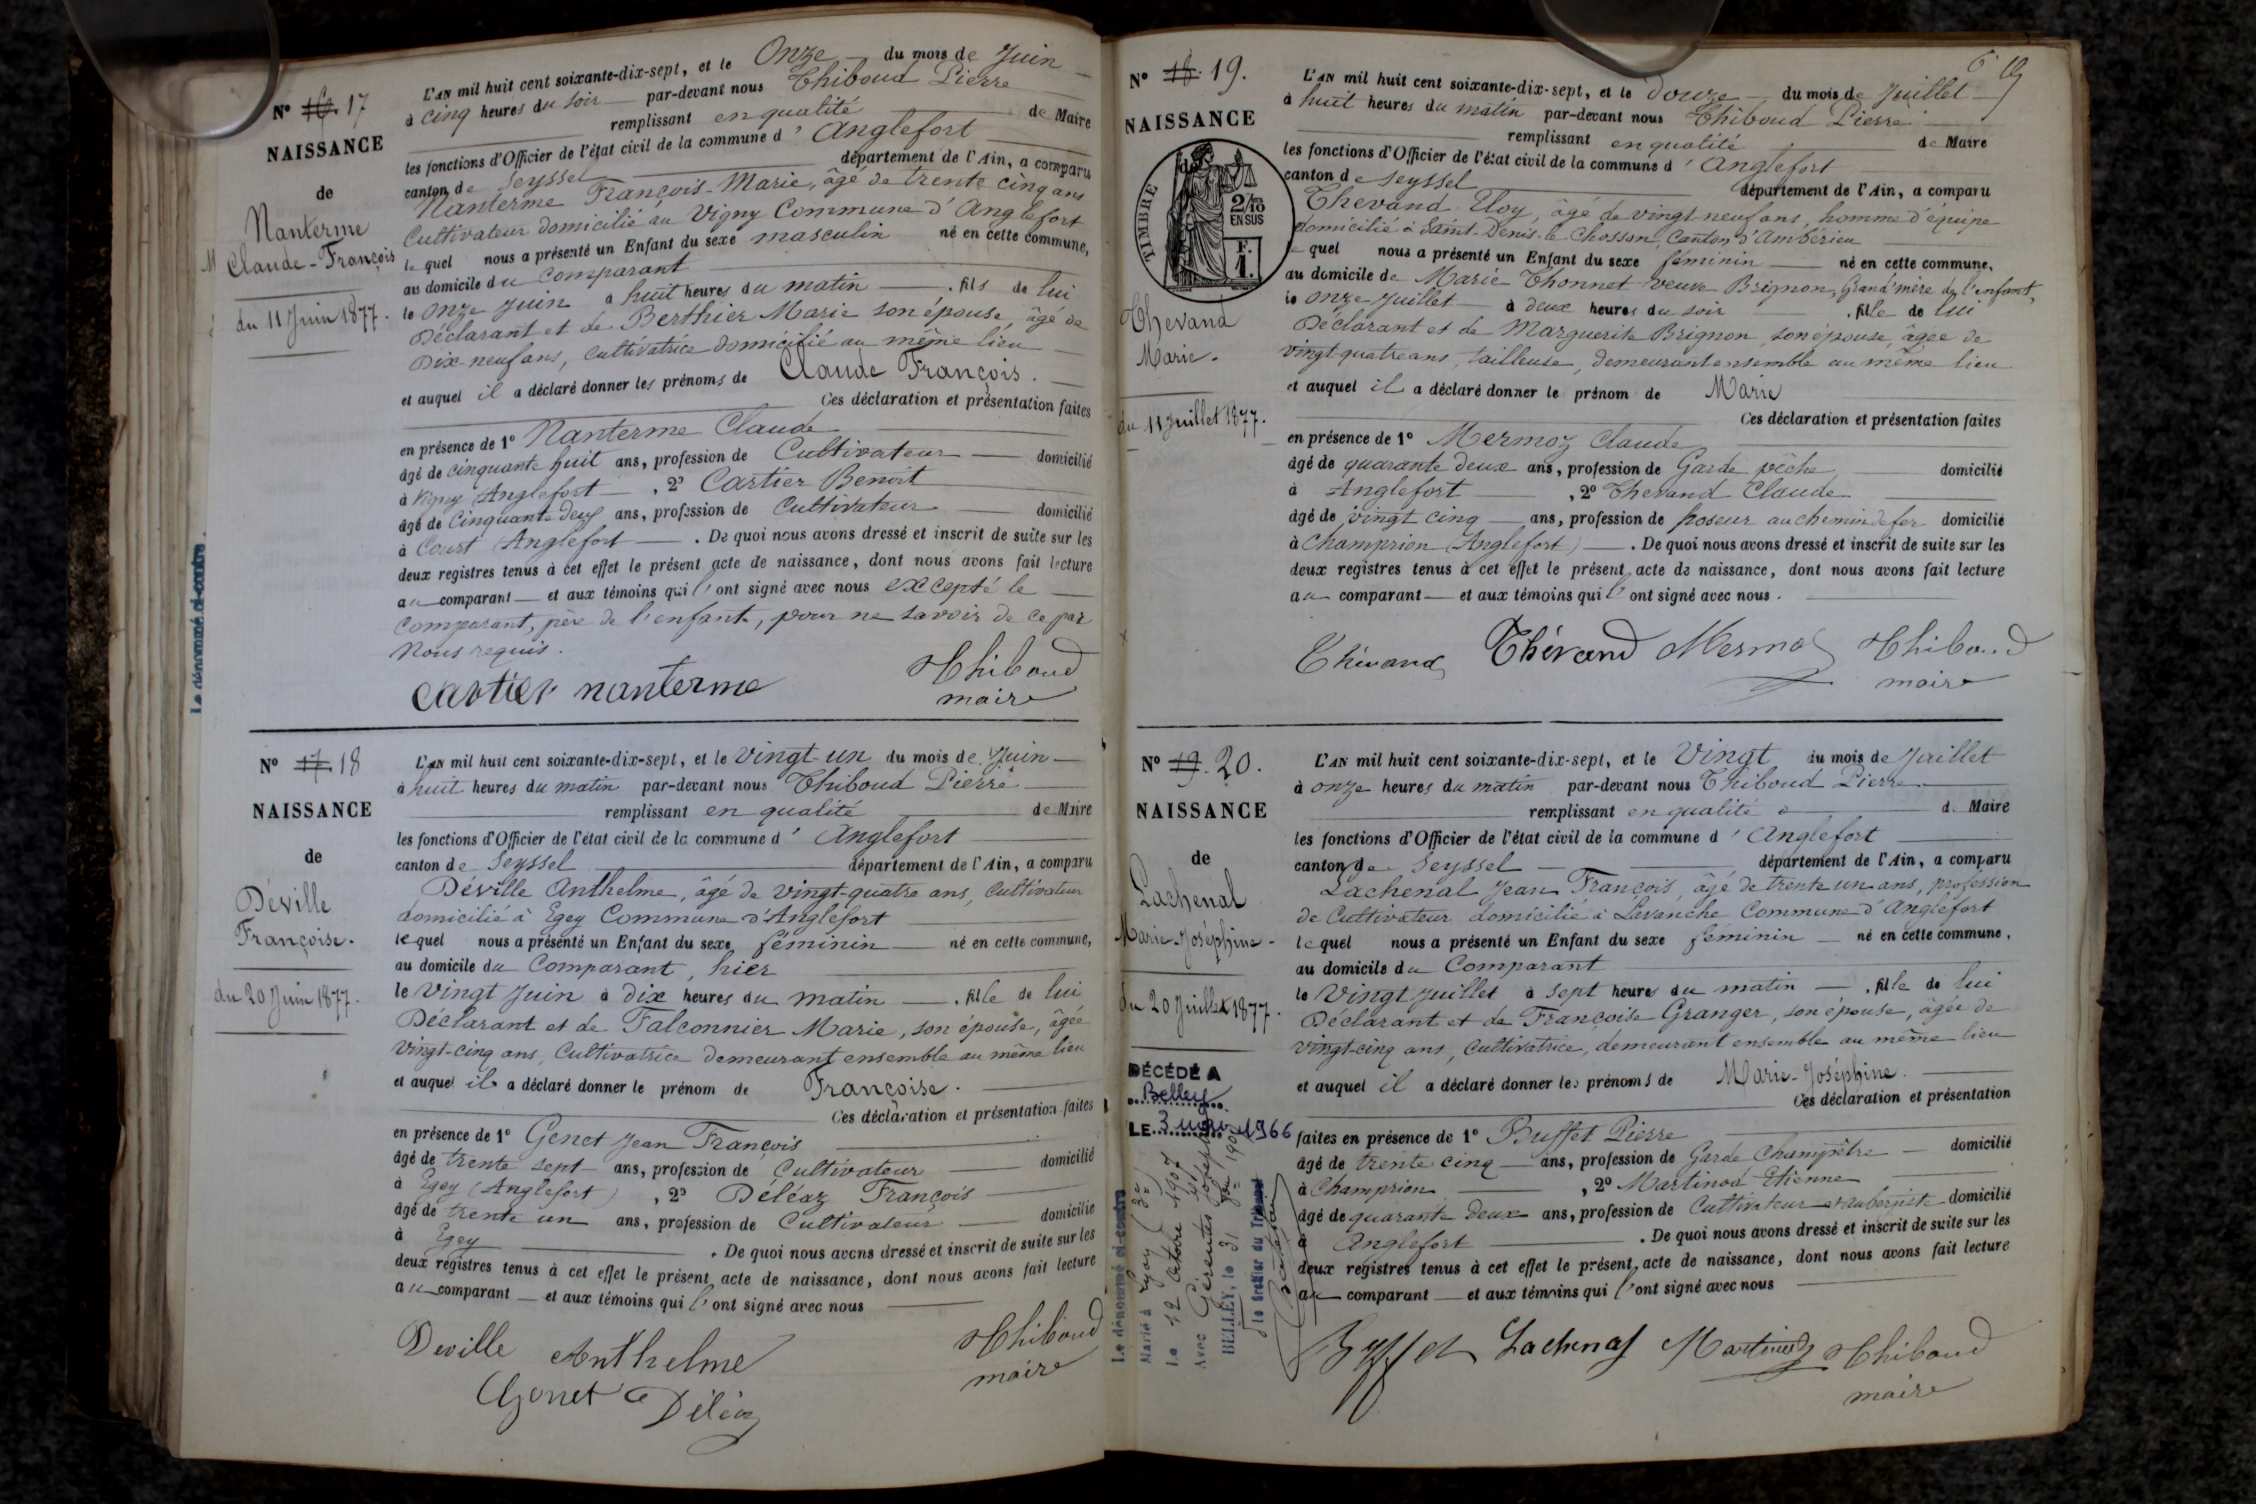 N° 16. 17
NAISSANCE
de
Nanterme
M Claude-François
du 11 Juin 1877.
L'AN mil huit cent soixante-dix-sept, et le Onze du mois de Juin
à cinq heures du soir par-devant nous Thiboud Pierre
remplissant en qualité de Maire
les fonctions d'Officier de l'état civil de la commune d'Anglefort
canton de Seyssel département de l'Ain, a comparu
Nanterme François-Marie, âgé de trente cinq ans
Cultivateur domicilié au Vigny Commune d'Anglefort
lequel nous a présenté un Enfant du sexe masculin né en cette commune,
au domicile du Comparant
le Onze Juin à huit heures du matin . fils de lui
Déclarant et de Berthier Marie son épouse, âgé de
Dix-neuf ans, cultivatrice domicilié au même lieu
et auquel il a déclaré donner les prénoms de Claude François.
Ces déclaration et présentation faites
en présence de 1° Nanterme Claude
âgé de cinquante huit ans, profession de Cultivateur domicilié
à Vigny Anglefort , 2° Cartier Benoit
âgé de Cinquante Deux ans, profession de Cultivateur domicilié
à Court (Anglefort . De quoi nous avons dressé et inscrit de suite sur les
deux registres tenus à cet effet le présent acte de naissance, dont nous avons fait lecture
au comparant et aux témoins qui l'ont signé avec nous excepté le
Comparant, père de l'enfant, pour ne savoir de ce par
Nous requis.
Cartier nanterme Thiboud
maire
Le dénommé ci-contre
N° 17. 18
NAISSANCE
de
Déville
Françoise.
du 20 Juin 1877.
L'AN mil huit cent soixante-dix-sept, et le Vingt-un du mois de Juin
à huit heures du matin par-devant nous Thiboud Pierre
remplissant en qualité de Maire
les fonctions d'Officier de l'état civil de la commune d'Anglefort
canton de Seyssel département de l'Ain, a comparu
Déville Anthelme, âgé de vingt-quatre ans, Cultivateur
domicilié à Egey Commune d'Anglefort
lequel nous a présenté un Enfant du sexe féminin né en cette commune,
au domicile du Comparant, hier
le Vingt Juin à Dix heures du matin . fille de lui
Déclarant et de Falconnier Marie, son épouse, âgée
Vingt-cinq ans, Cultivatrice demeurant ensemble au même lieu
et auquel il a déclaré donner le prénom de Françoise.
Ces déclaration et présentation faites
en présence de 1° Genet Jean François
âgé de trente sept ans, profession de Cultivateur domicilié
à Egey (Anglefort) , 2° Déléaz François
âgé de trente un ans, profession de Cultivateur domicilié
à Egey . De quoi nous avons dressé et inscrit de suite sur les
deux registres tenus à cet effet le présent acte de naissance, dont nous avons fait lecture
au comparant et aux témoins qui l'ont signé avec nous
Deville Anthelme Thiboud
maire
Genet Déléaz
6
N° 18. 19.
NAISSANCE
de
TIMBRE
2/10 EN SUS
F. 1.
Thevand
Marie.
du 11 Juillet 1877.
L'AN mil huit cent soixante-dix-sept, et le Douze du mois de Juillet
à huit heures du matin par-devant nous Thiboud Pierre
remplissant en qualité de Maire
les fonctions d'Officier de l'état civil de la commune d'Anglefort
canton de Seyssel département de l'Ain, a comparu
Thevand Eloy, âgé de vingt neuf ans, homme d'équipe
domicilié à Saint-Denis-le Chosson, Canton d'Ambérieu
lequel nous a présenté un Enfant du sexe féminin né en cette commune,
au domicile de Marie Thonnet veuve Brignon, Grand'mère de l'enfant,
le onze Juillet à deux heures du soir . fille de lui
Déclarant et de Marguerite Brignon, son épouse, âgée de
vingt-quatre ans, tailleuse, demeurant ensemble au même lieu
et auquel il a déclaré donner le prénom de Marie
Ces déclaration et présentation faites
en présence de 1° Mermoz Claude
âgé de quarante deux ans, profession de Garde pêche domicilié
à Anglefort , 2° Thevand Claude
âgé de vingt cinq ans, profession de poseur au chemin de fer domicilié
à Champrion (Anglefort) . De quoi nous avons dressé et inscrit de suite sur les
deux registres tenus à cet effet le présent acte de naissance, dont nous avons fait lecture
au comparant et aux témoins qui l'ont signé avec nous.
Thévand Thévand Mermoz Thiboud
maire
N° 19. 20.
NAISSANCE
de
Lachenal
Marie-Joséphine
du 20 Juillet 1877.
DÉCÉDÉ A
Belley
LE 3 1966
Le dénommé ci-contre
Marié à Lyon (3e)
Le 12 Octobre 1907
Avec
BELLEY, le 31
Le Greffier du Tribunal
L'AN mil huit cent soixante-dix-sept, et le Vingt du mois de Juillet
à onze heures du matin par-devant nous Thiboud Pierre
remplissant en qualité de Maire
les fonctions d'Officier de l'état civil de la commune d'Anglefort
canton de Seyssel département de l'Ain, a comparu
Lachenal Jean François, âgé de trente un ans, profession
de Cultivateur domicilié à Lavanche Commune d'Anglefort
lequel nous a présenté un Enfant du sexe féminin né en cette commune,
au domicile du Comparant
le Vingt Juillet à sept heures du matin . fille de lui
Déclarant et de Françoise Granger, son épouse, âgée de
vingt-cinq ans, cultivatrice, demeurant ensemble au même lieu
et auquel il a déclaré donner les prénoms de Marie-Joséphine.
Ces déclaration et présentation
faites en présence de 1° Buffet Pierre
âgé de trente cinq ans, profession de Garde Champêtre domicilié
à Champrion , 2° Martinod Etienne
âgé de quarante deux ans, profession de Cultivateur et aubergiste domicilié
à Anglefort . De quoi nous avons dressé et inscrit de suite sur les
deux registres tenus à cet effet le présent acte de naissance, dont nous avons fait lecture
au comparant et aux témoins qui l'ont signé avec nous
Buffet Lachenal Martinod Thiboud
maire